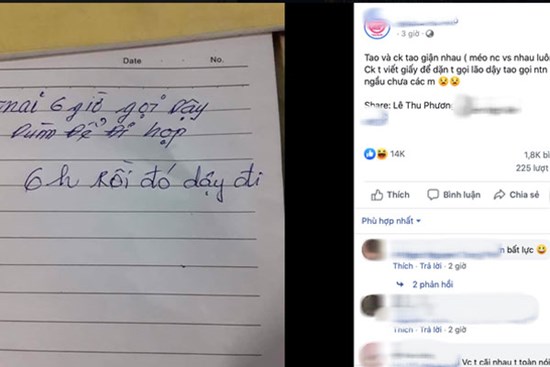 Date
No.
mai 6 giờ gọi dậy
dùm để đi họp
6 h rồi đó dậy đi
3 giờ
Tao và ck tao giận nhau ( méo nc vs nhau luô
Ck t viết giấy để dặn t gọi lão dậy tao gọi ntn
ngầu chưa các m 😧😧
Share: Lê Thu Phương
14K
1,8K bì
225 lượt
Thích
Bình luận
Chia sẻ
Phù hợp nhất
n bất lực 😀
Thích · Trả lời · 2 giờ
2 phản hồi
Thích · Trả lời · 2 giờ
Vc t cãi nhau t toàn nói